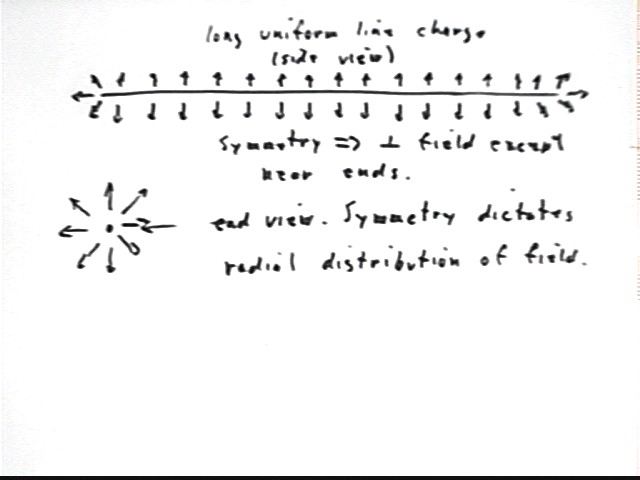 long uniform line charge
(side view)
Symmetry => ⊥ field except
near ends.
end view. Symmetry dictates
radial distribution of field.